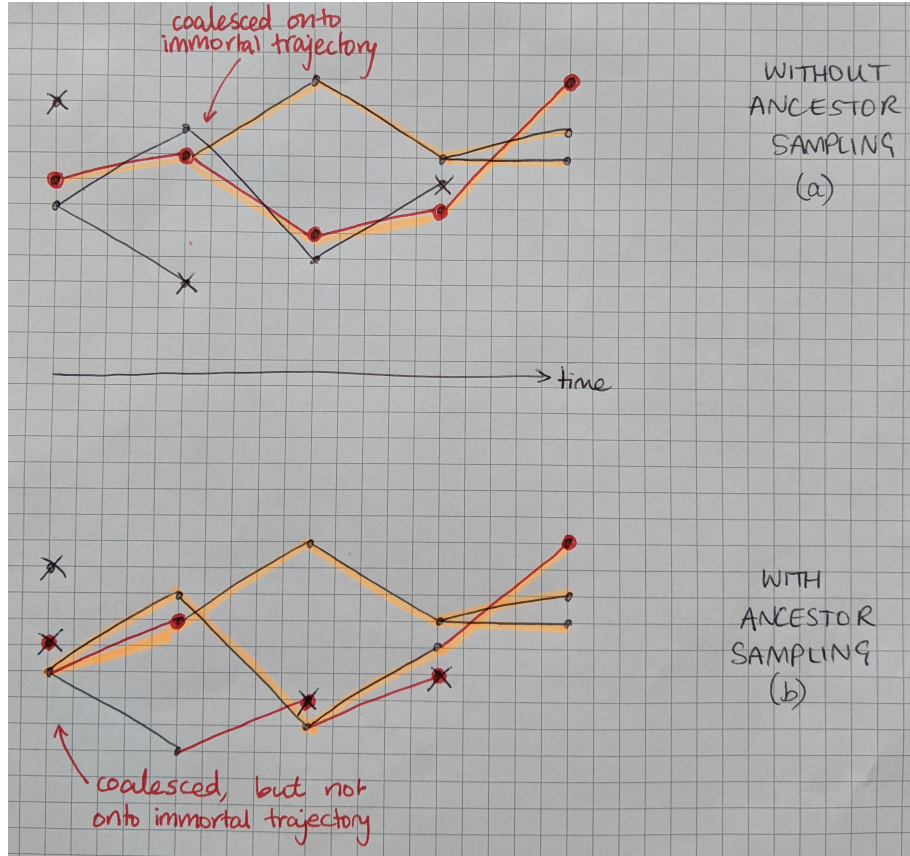 coalesced onto
immortal trajectory
WITHOUT
ANCESTOR
SAMPLING
(a)
time
WITH
ANCESTOR
SAMPLING
(b)
coalesced, but not
onto immortal trajectory